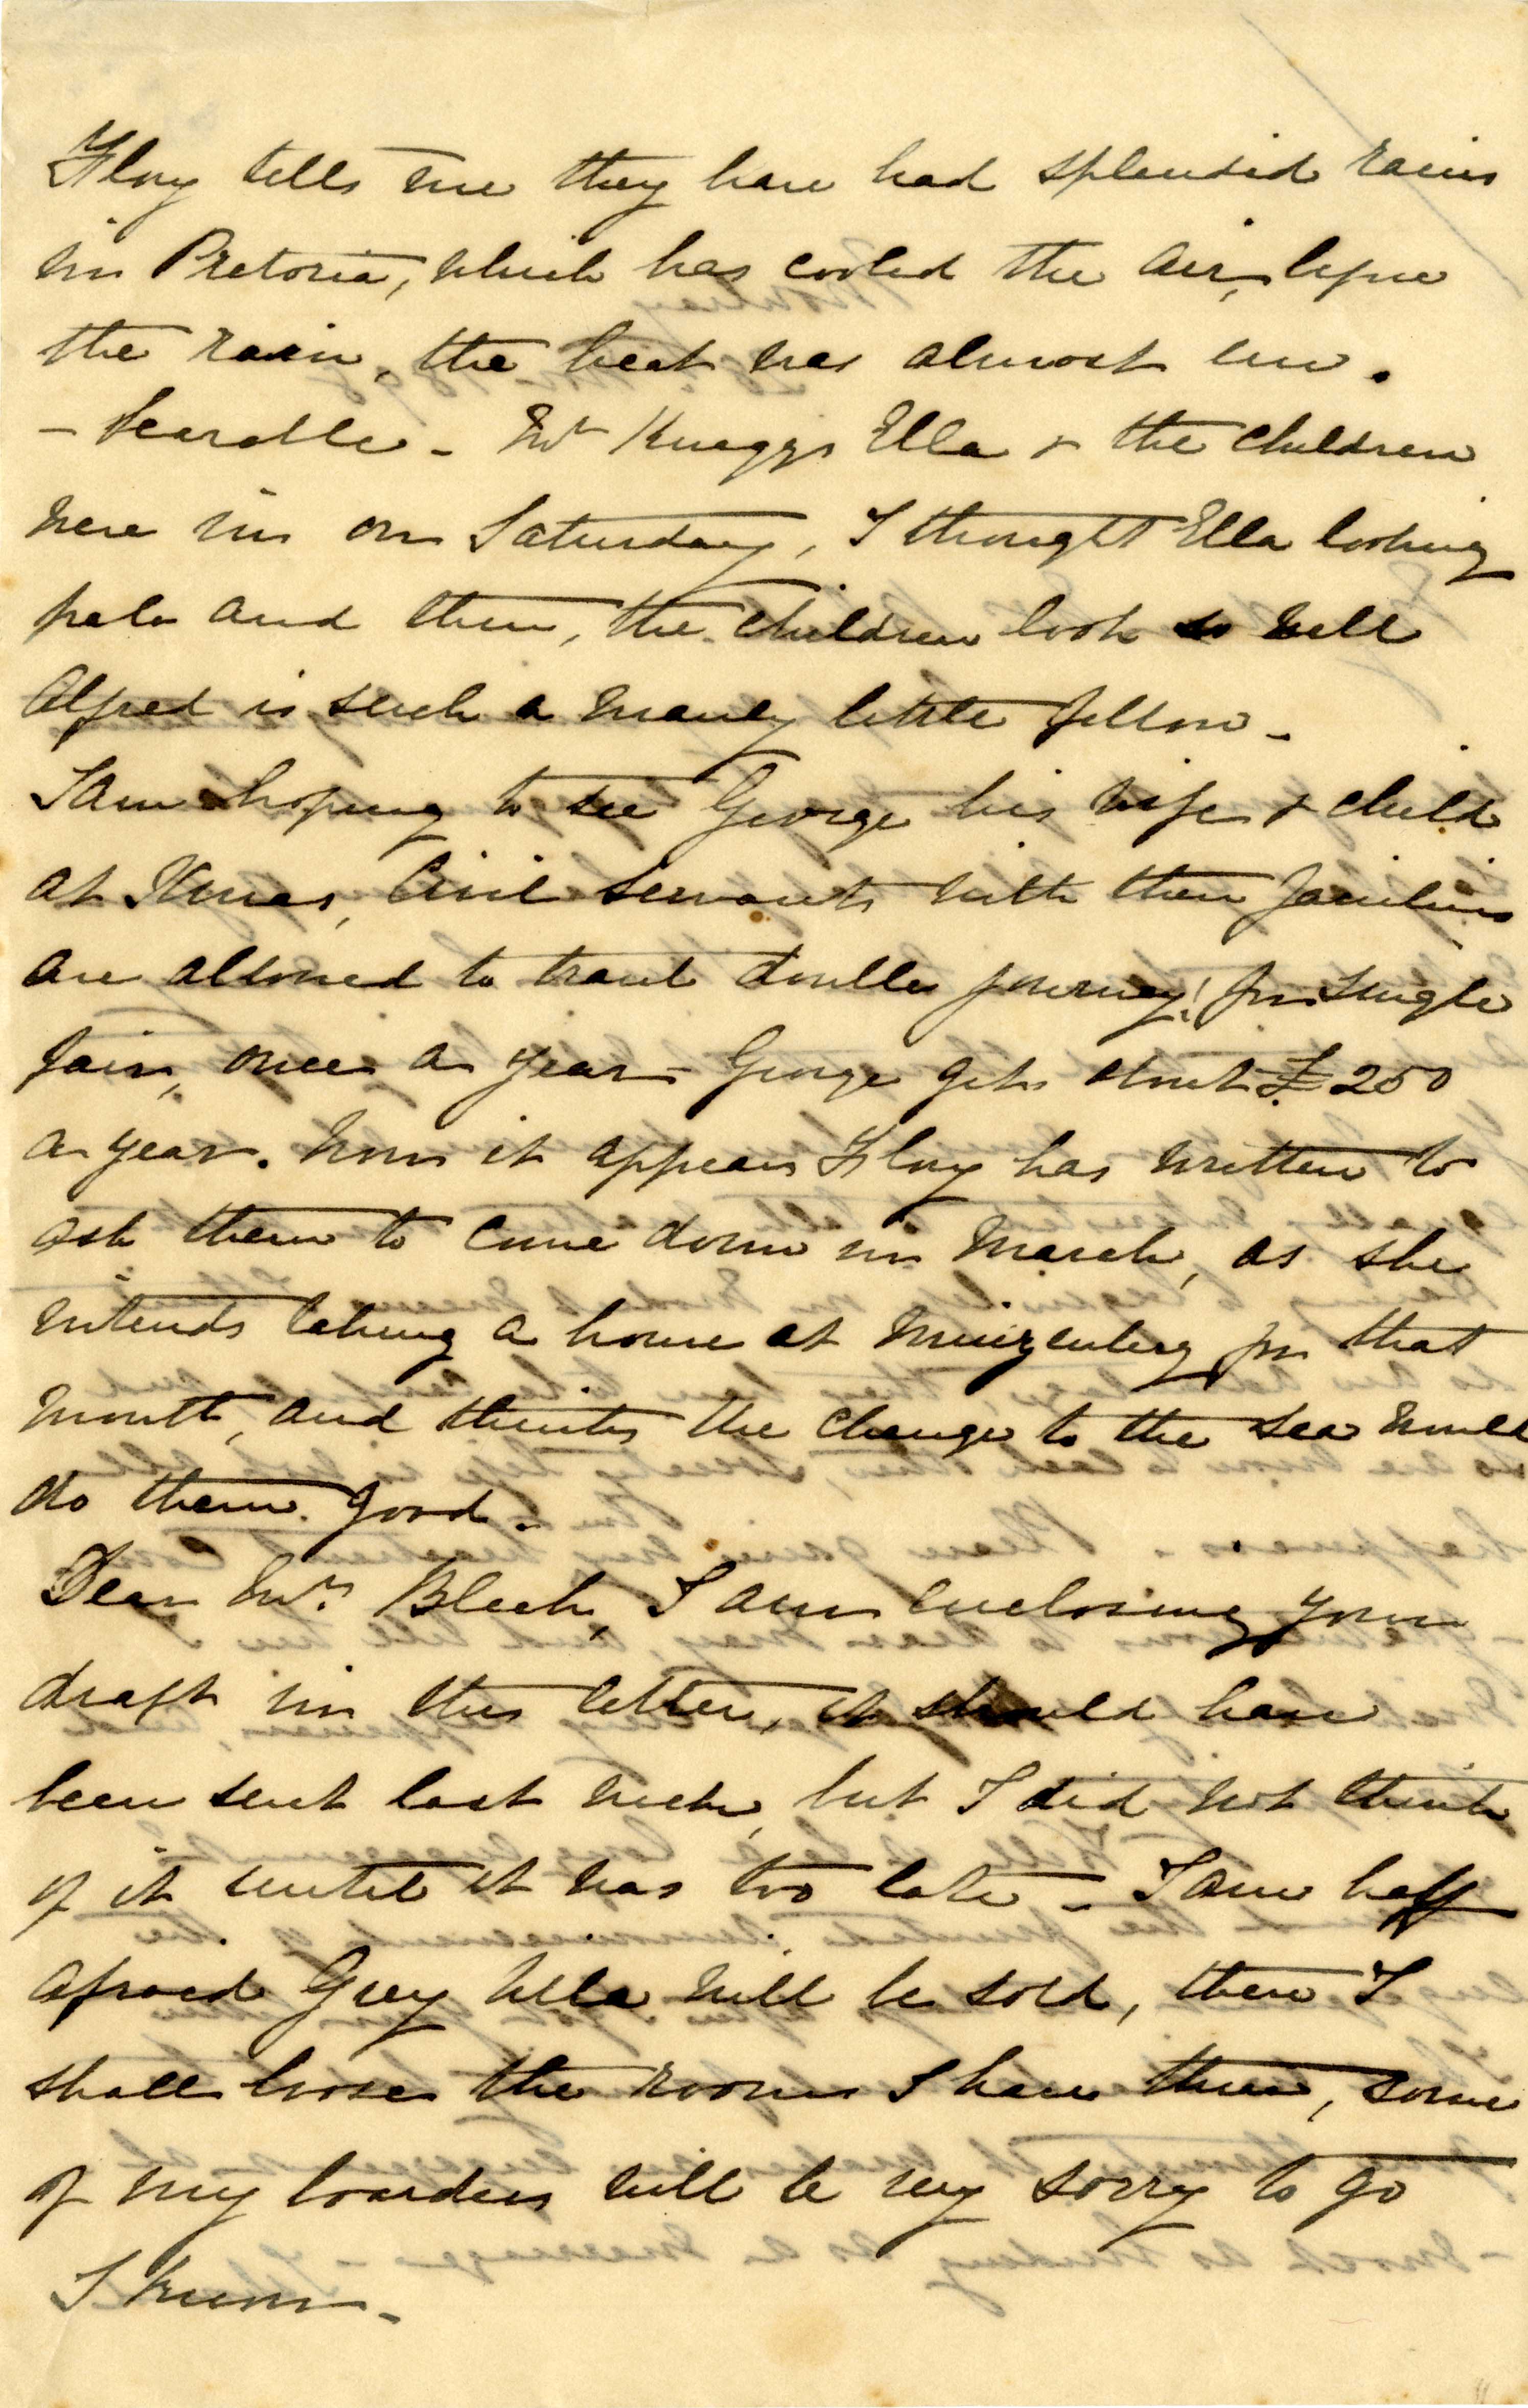 Flory tells me they have had splendid rains
in Pretoria, which has cooled the air, before
the rain, the heat was almost un-
-bearable - Mr Knaggs Ella & the children
were in on Saturday, I thought Ella looking
pale and thin, the children look so well
Alfred is such a manly little fellow -
I am hoping to see George his wife & child
at Xmas, Civil servants with their families
are allowed to travel double journey! for single
fair, once a year - George gets about £250
a year. Now it appears Flory has written to
ask them to come down in March, as she
intends taking a house at Muizenberg for that
month, and thinks the change to the sea would
do them good -
Dear Mrs. Bleek, I am enclosing your
draft in this letter, it should have
been sent last week, but I did not think
of it until it was too late - I am half
afraid Grey Villa will be sold, then I
shall loose the rooms I have there, some
of my boarders will be very sorry to go
I know -